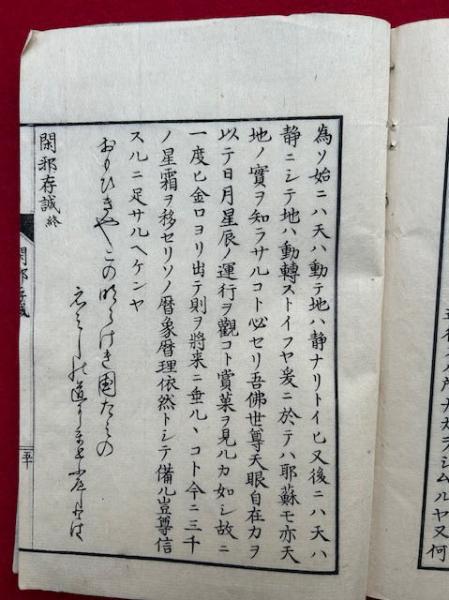 ラシムルヤ又何
為ソ始ニハ天ハ動テ地ハ静ナリトイヒ又後ニハ天ハ
静ニシテ地ハ動轉ストイフヤ爰ニ於テハ耶蘇モ亦天
地ノ實ヲ知ラサルコト必セリ吾佛世尊天眼自在力ヲ
以テ日月星辰ノ運行ヲ觀コト賞菓ヲ見ルカ如シ故ニ
一度ヒ金口ヨリ出テ則ヲ将来ニ垂ルヽコト今ニ三千
ノ星霜ヲ移セリソノ暦象暦理依然トシテ備ル豈尊信
スルニ足サルヘケンヤ
おもひきやこの明らけき国たみの
えみしの道に
閑邪存誠終
閑邪存誠
五十